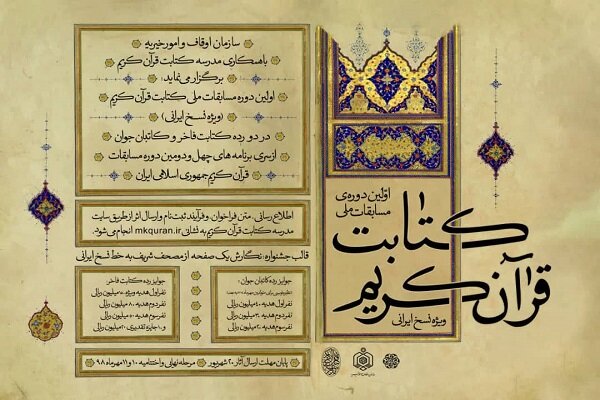 اولین دوره‌ی
مسابقات ملی
کتابت
قرآن کریم
ویژه نسخ ایرانی
سازمان اوقاف و امور خیریه
با همکاری مدرسه کتابت قرآن کریم
برگزار می‌نماید:
اولین دوره مسابقات ملی کتابت قرآن کریم
(ویژه نسخ ایرانی)
در دو رده کتابت فاخر و کاتبان جوان
از سری برنامه های چهل و دومین دوره مسابقات
قرآن کریم جمهوری اسلامی ایران
اطلاع رسانی، متن فراخوان، و فرآیند ثبت‌نام و ارسال اثر از طریق سایت
مدرسه کتابت قرآن کریم به نشانی mkquran.ir انجام می‌شود.
قالب جشنواره: نگارش یک صفحه از مصحف شریف به خط نسخ ایرانی
جوایز رده کاتبان جوان:
نفر اول هدیه ۴۰ میلیون ریالی
نفر دوم هدیه ۳۰ میلیون ریالی
نفر سوم هدیه ۲۰ میلیون ریالی
جوایز رده کتابت فاخر:
نفر اول هدیه ویژه ۱۰۰ میلیون ریالی
نفر دوم هدیه ۸۰ میلیون ریالی
نفر سوم هدیه ۵۰ میلیون ریالی
و ۱۰ جایزه تقدیری ۲۰ میلیون ریالی
پایان مهلت ارسال آثار ۲۰ شهریور
مرحله نهایی و اختتامیه ۱۰ و ۱۱ مهرماه ۹۸